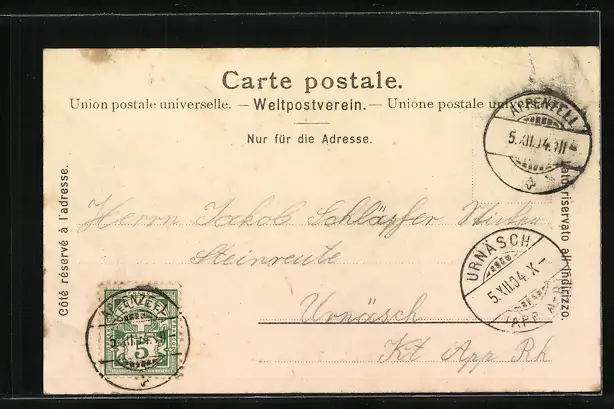 Carte postale.
Union postale universelle. — Weltpostverein. — Unione postale universale
Nur für die Adresse.
Côté réservé à l'adresse.
Lato riservato all'indirizzo.
APPENZELL
5.XII.04.III
Herrn Jakob Schläpfer
Steinreute
Urnäsch
Kt App Rh
URNÄSCH
5.XII.04.X—
(APP. A-R)
APPENZELL
5.XII.04
5